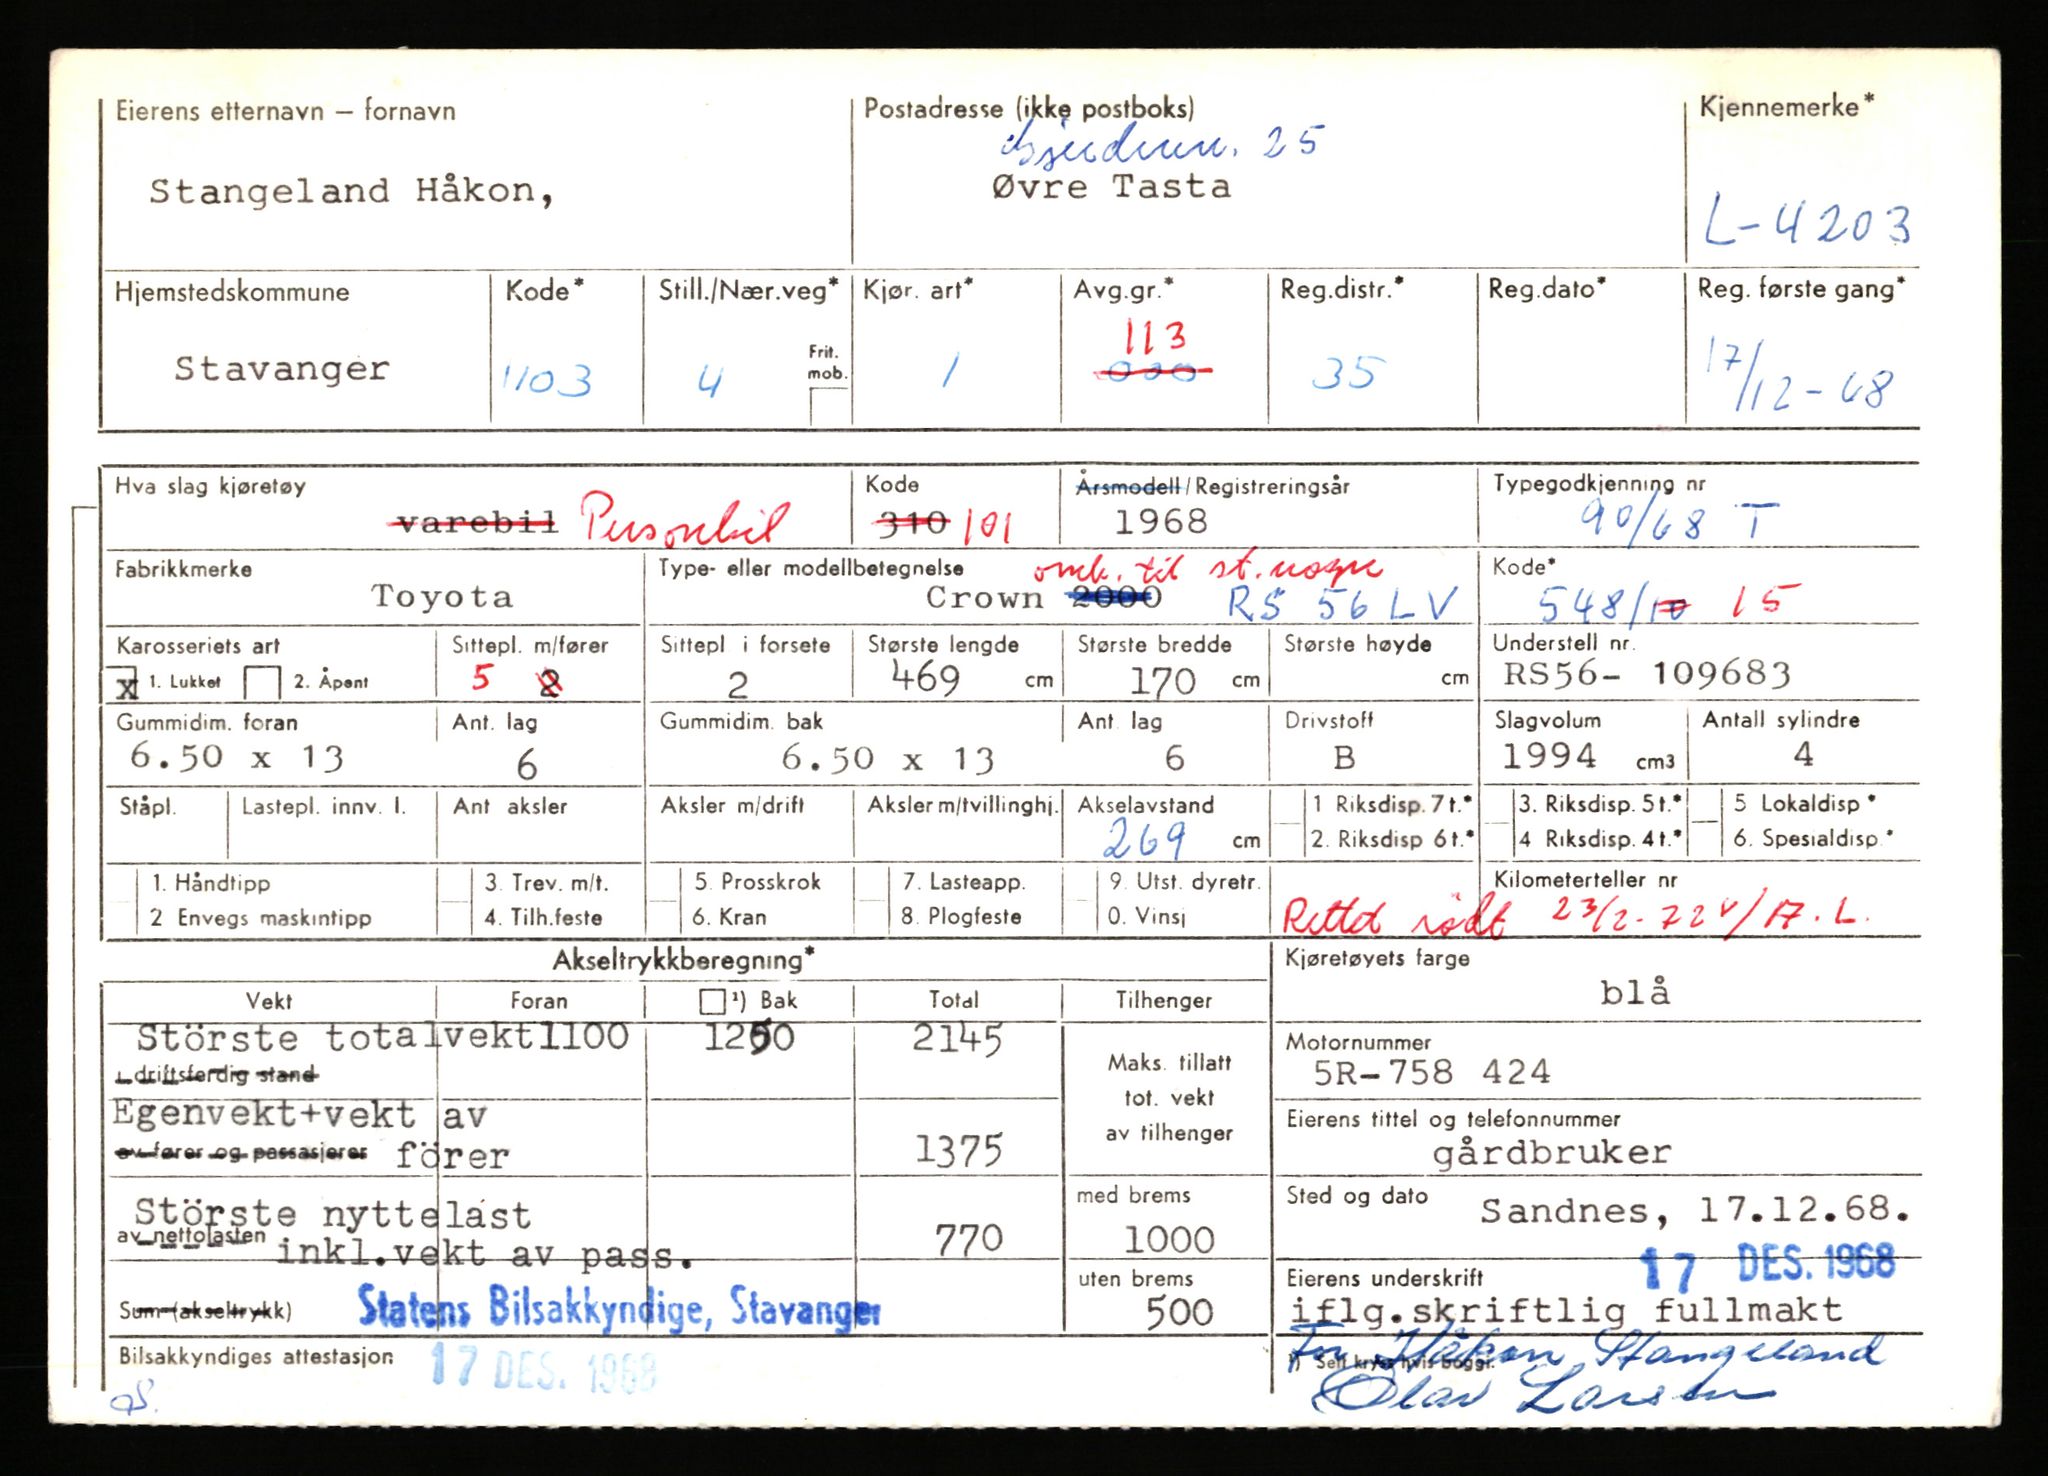 Eierens etternavn — fornavn
Postadresse (ikke postboks)
Kjennemerke*
25
Stangeland Håkon,
Øvre Tasta
L-4203
Hjemstedskommune
Kode*
Still./Nær.veg*
Kjør. art*
Avg.gr.*
Reg.distr.*
Reg.dato*
Reg. første gang*
113
Stavanger
1103
4
Frit. mob.
1
000
35
17/12-68
Hva slag kjøretøy
Kode
Årsmodell/Registreringsår
Typegodkjenning nr
varebil Personbil
310 101
1968
90/68 T
Fabrikkmerke
Type- eller modellbetegnelse
omb. til st.vogn
Kode*
Toyota
Crown 2000 RS 56 LV
548/10 15
Karosseriets art
Sittepl. m/fører
Sittepl i forsete
Største lengde
Største bredde
Største høyde
Understell nr.
x 1. Lukket 2. Åpent
5 2
2
469 cm
170 cm
cm
RS56- 109683
Gummidim. foran
Ant. lag
Gummidim. bak
Ant lag
Drivstoff
Slagvolum
Antall sylindre
6.50 x 13
6
6.50 x 13
6
B
1994 cm3
4
Ståpl.
Lastepl. innv. l.
Ant aksler
Aksler m/drift
Aksler m/tvillinghj.
Akselavstand
269 cm
1 Riksdisp. 7 t.*
2. Riksdisp 6 t.*
3. Riksdisp. 5 t.*
4 Riksdisp. 4 t.*
5 Lokaldisp*
6. Spesialdisp.*
1. Håndtipp
2 Envegs maskintipp
3. Trev. m/t.
4. Tilh.feste
5. Prosskrok
6. Kran
7. Lasteapp.
8. Plogfeste
9. Utst. dyretr.
0. Vinsj
Kilometerteller nr
Rettet rødt 23/2-72 /17. L.
Akseltrykkberegning*
Kjøretøyets farge
blå
Vekt
Foran
¹) Bak
Total
Tilhenger
Störste totalvekt 1100
1250
2145
i driftsferdig stand
Maks. tillatt
tot. vekt
av tilhenger
Motornummer
5R-758 424
Egenvekt+vekt av
av fører og passasjerer förer
1375
Eierens tittel og telefonnummer
gårdbruker
Störste nyttelast
av nettolasten inkl.vekt av pass.
770
med brems
1000
Sted og dato
Sandnes, 17.12.68.
17 DES. 1968
Sum (akseltrykk)
Statens Bilsakkyndige, Stavanger
uten brems
500
Eierens underskrift
iflg.skriftlig fullmakt
Bilsakkyndiges attestasjon
17 DES. 1968
¹) Sett kryss hvis boggi.
For Håkon Stangeland
Olav Larsen